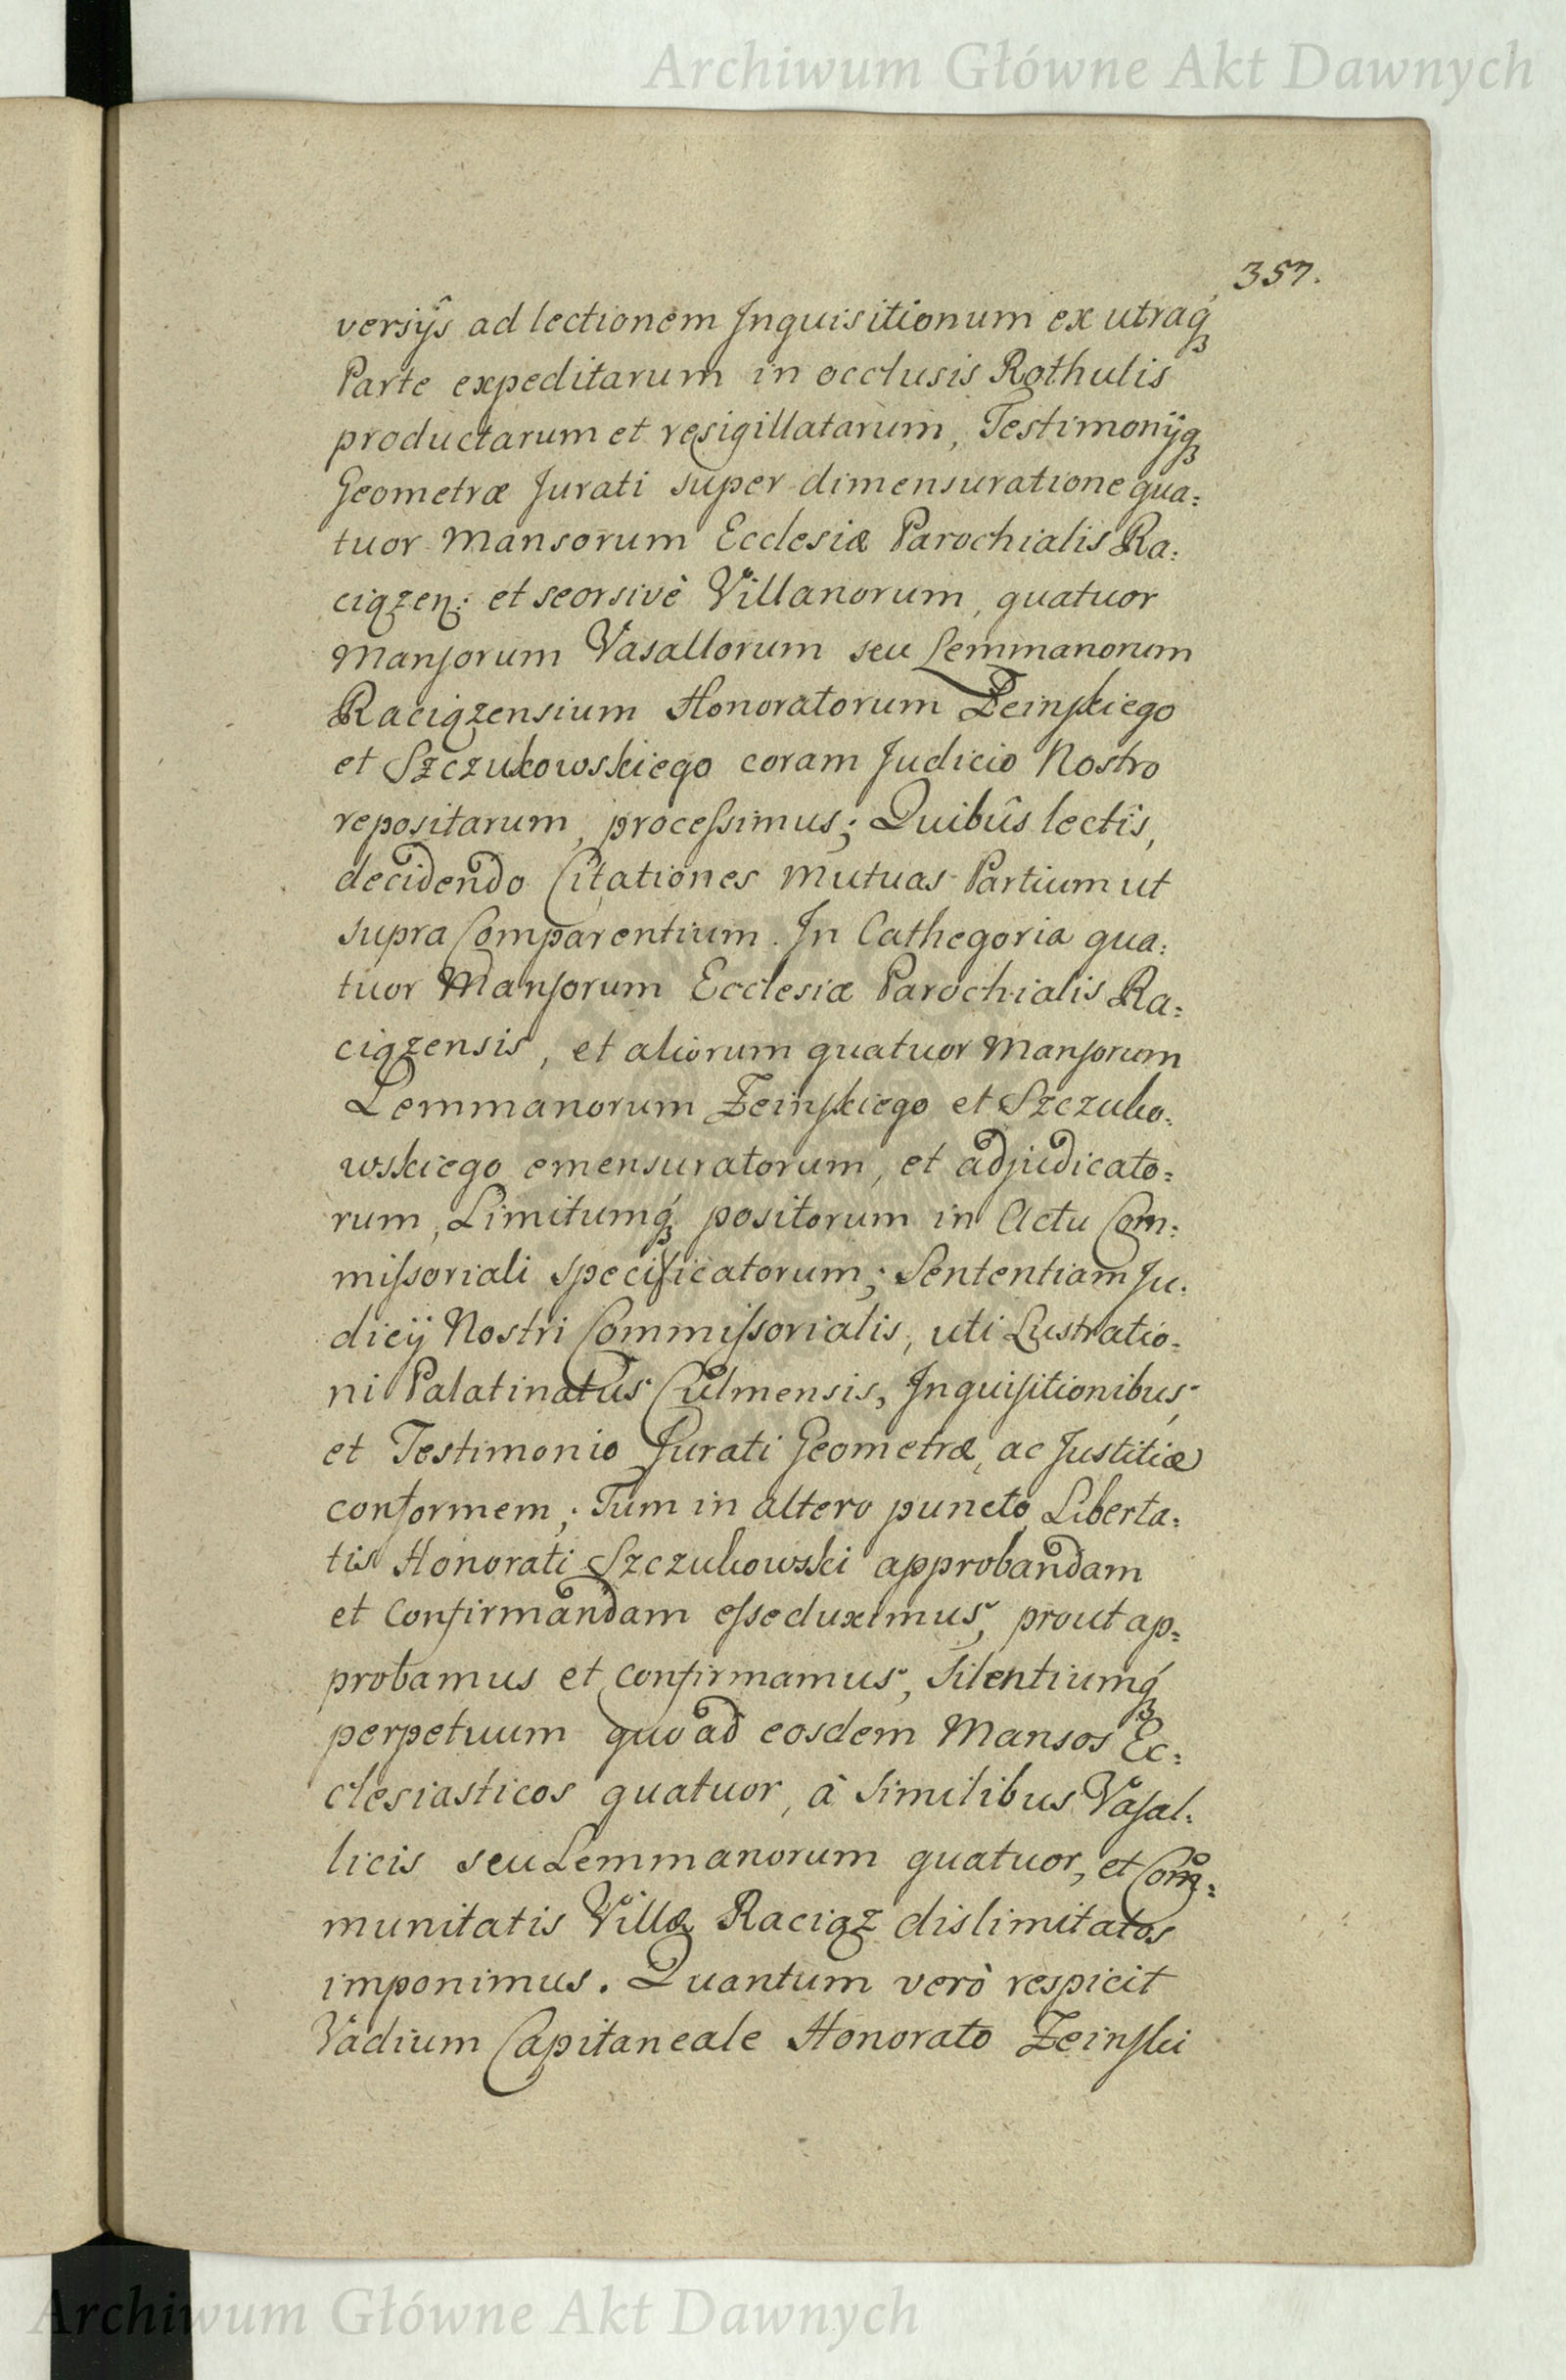 Archiwum Główne Akt Dawnych
357.
versijs ad lectionem Inquisitionum ex utraq́
Parte expeditarum in occlusis Rothulis
productarum et resigillatarum, Testimonijq
Geometræ Jurati super dimensuratione qua:
tuor Mansorum Ecclesiæ Parochialis Ra:
ciązen: et seorsivè Villanorum, quatuor
Manſorum Vasallorum seu Lemmanorum
Raciązensium Honoratorum Zeinſkiego
et Szczukowskiego coram Judicio Nostro
repositarum, proceſsimus; Quibûs lectîs,
decidendo Citationes mutuas Partium ut
supra Comparentium. In Cathegoria qua:
tuor Manſorum Ecclesiæ Parochialis Ra:
ciązensis, et aliorum quatuor Manſorum
Lemmanorum Zeinſkiego et Szczuko:
wskiego emensuratorum, et adjudicato:
rum, Limitumq́ positorum in Actu Com:
miſsoriali specificatorum; Sententiam Ju:
dicij Nostri Commiſsorialis, uti Lustratio:
ni Palatinatus Culmensis, Inquiſitionibus,
et Testimonio Jurati Geometræ, ac Justitiæ
conformem; Tum in altero puncto Liberta:
tis Honorati Szczukowski approbandam
et Confirmandam eſse duximus, prout ap:
probamus et confirmamus, Silentiumq́
perpetuum quo ad eosdem Mansos Ec:
clesiasticos quatuor, à Similibus Vaſal:
licis seu Lemmanorum quatuor, et Com:
munitatis Villæ Raciąz dislimitatos
imponimus. Quantum verò respicit
Vadium Capitaneale Honorato Zeinſki
Archiwum Główne Akt Dawnych